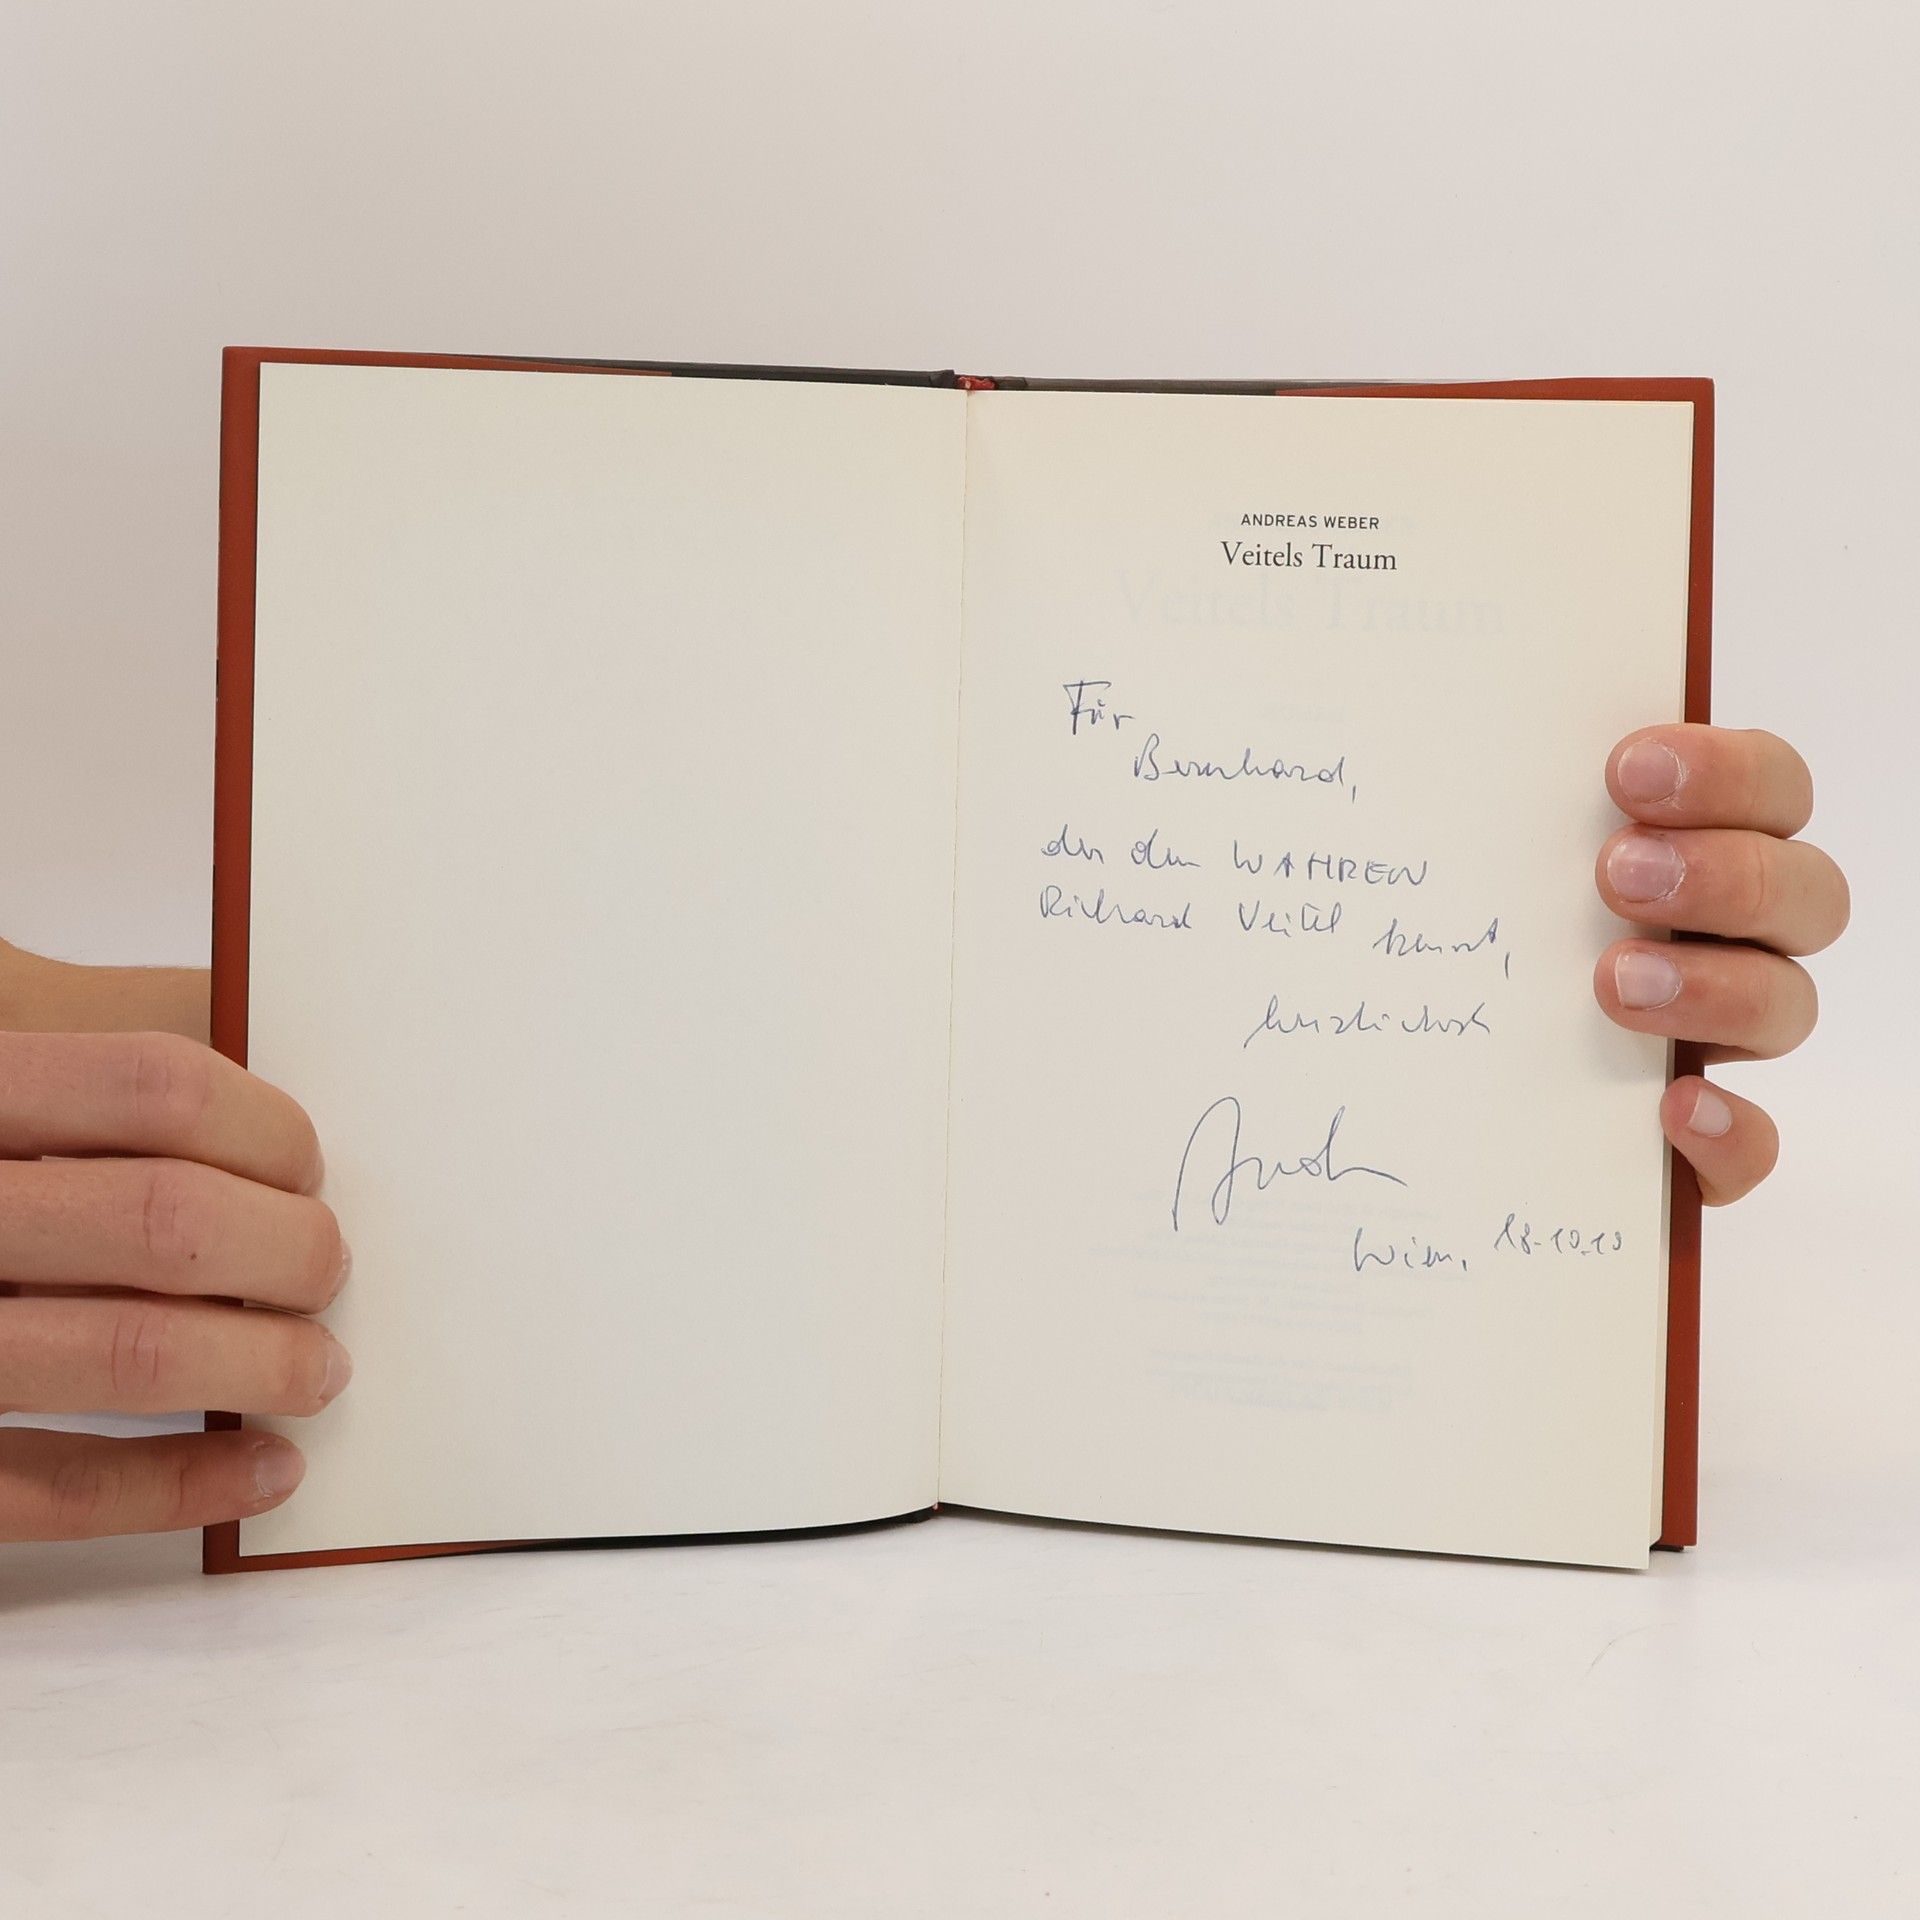 ANDREAS WEBER
Veitels Traum
Für
Bernhard,
der den WAHREN
Richard Veitel kennt,
herzlichst
Wien, 18.10.10